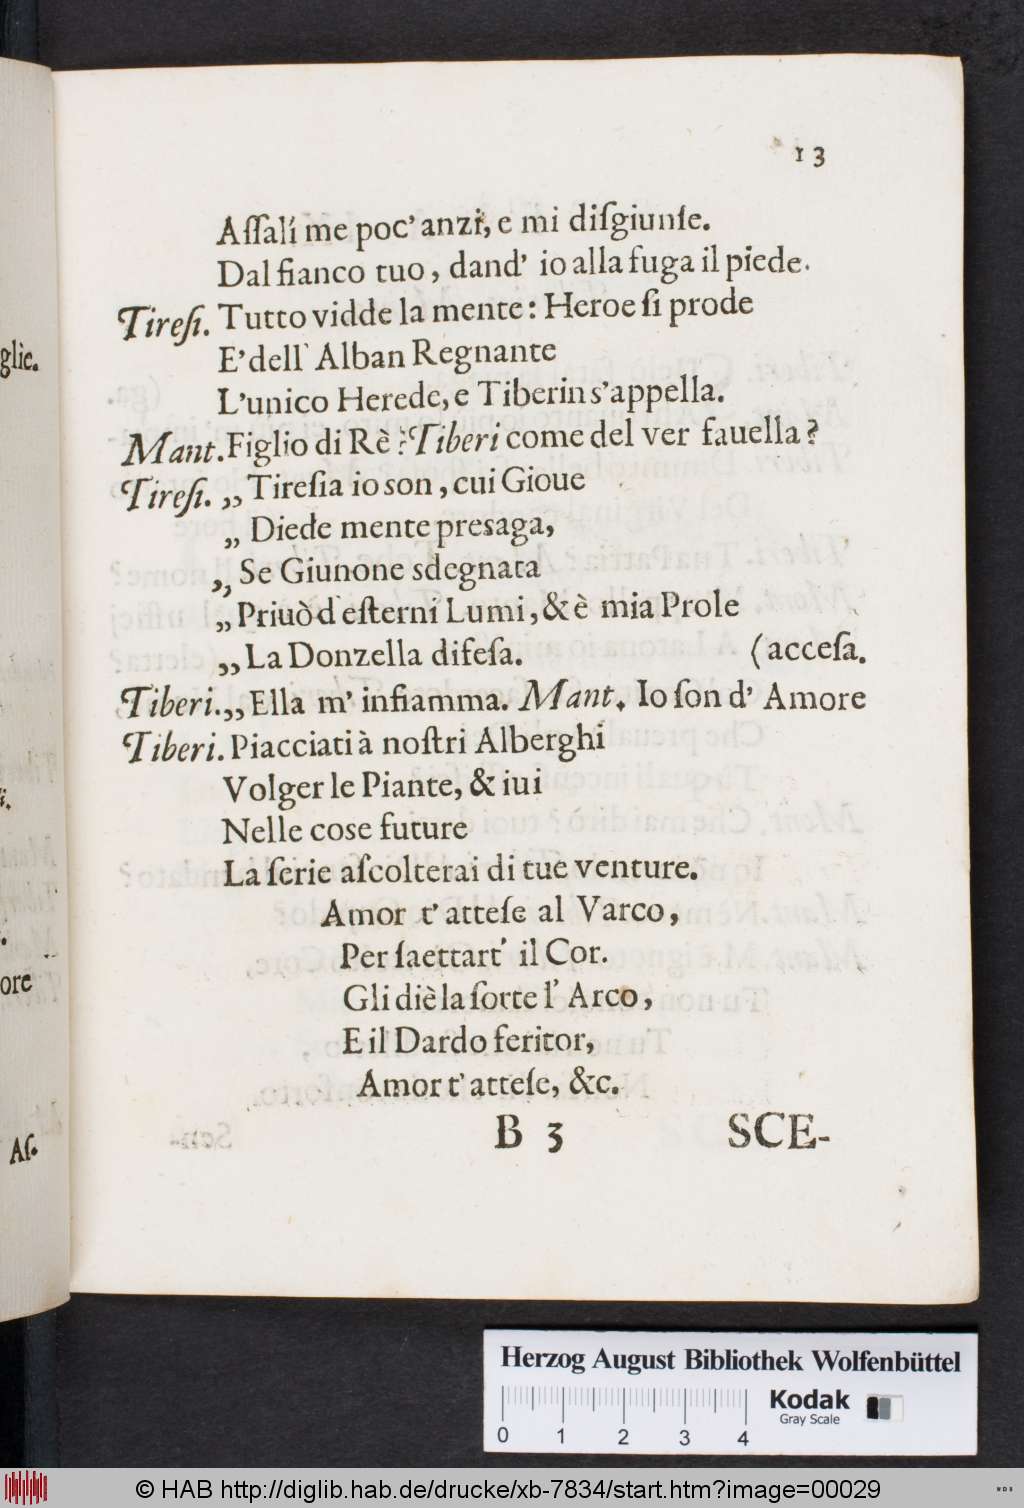 13
Aſſalí me poc' anzi, e mi diſgiunſe.
Dal fianco tuo, dand' io alla fuga il piede.
Tireſi. Tutto vidde la mente: Heroe ſi prode
E' dell' Alban Regnante
L'unico Herede, e Tiberin s'appella.
Mant. Figlio di Rè? Tiberi come del ver fauella?
Tireſi. „ Tireſia io son, cui Gioue
„ Diede mente presaga,
„ Se Giunone sdegnata
„ Priuò d'eſterni Lumi, & è mia Prole
„ La Donzella difeſa. (acceſa.
Tiberi. „ Ella m' infiamma. Mant. Io ſon d' Amore
Tiberi. Piacciati à noſtri Alberghi
Volger le Piante, & iui
Nelle cose future
La ſerie aſcolterai di tue venture.
Amor t' atteſe al Varco,
Per ſaettart' il Cor.
Gli diè la ſorte l' Arco,
E il Dardo feritor,
Amor t' atteſe, &c.
B 3 SCE-
glie.
ore
Aſ.
Herzog August Bibliothek Wolfenbüttel
0 1 2 3 4
Kodak
Gray Scale
© HAB http://diglib.hab.de/drucke/xb-7834/start.htm?image=00029